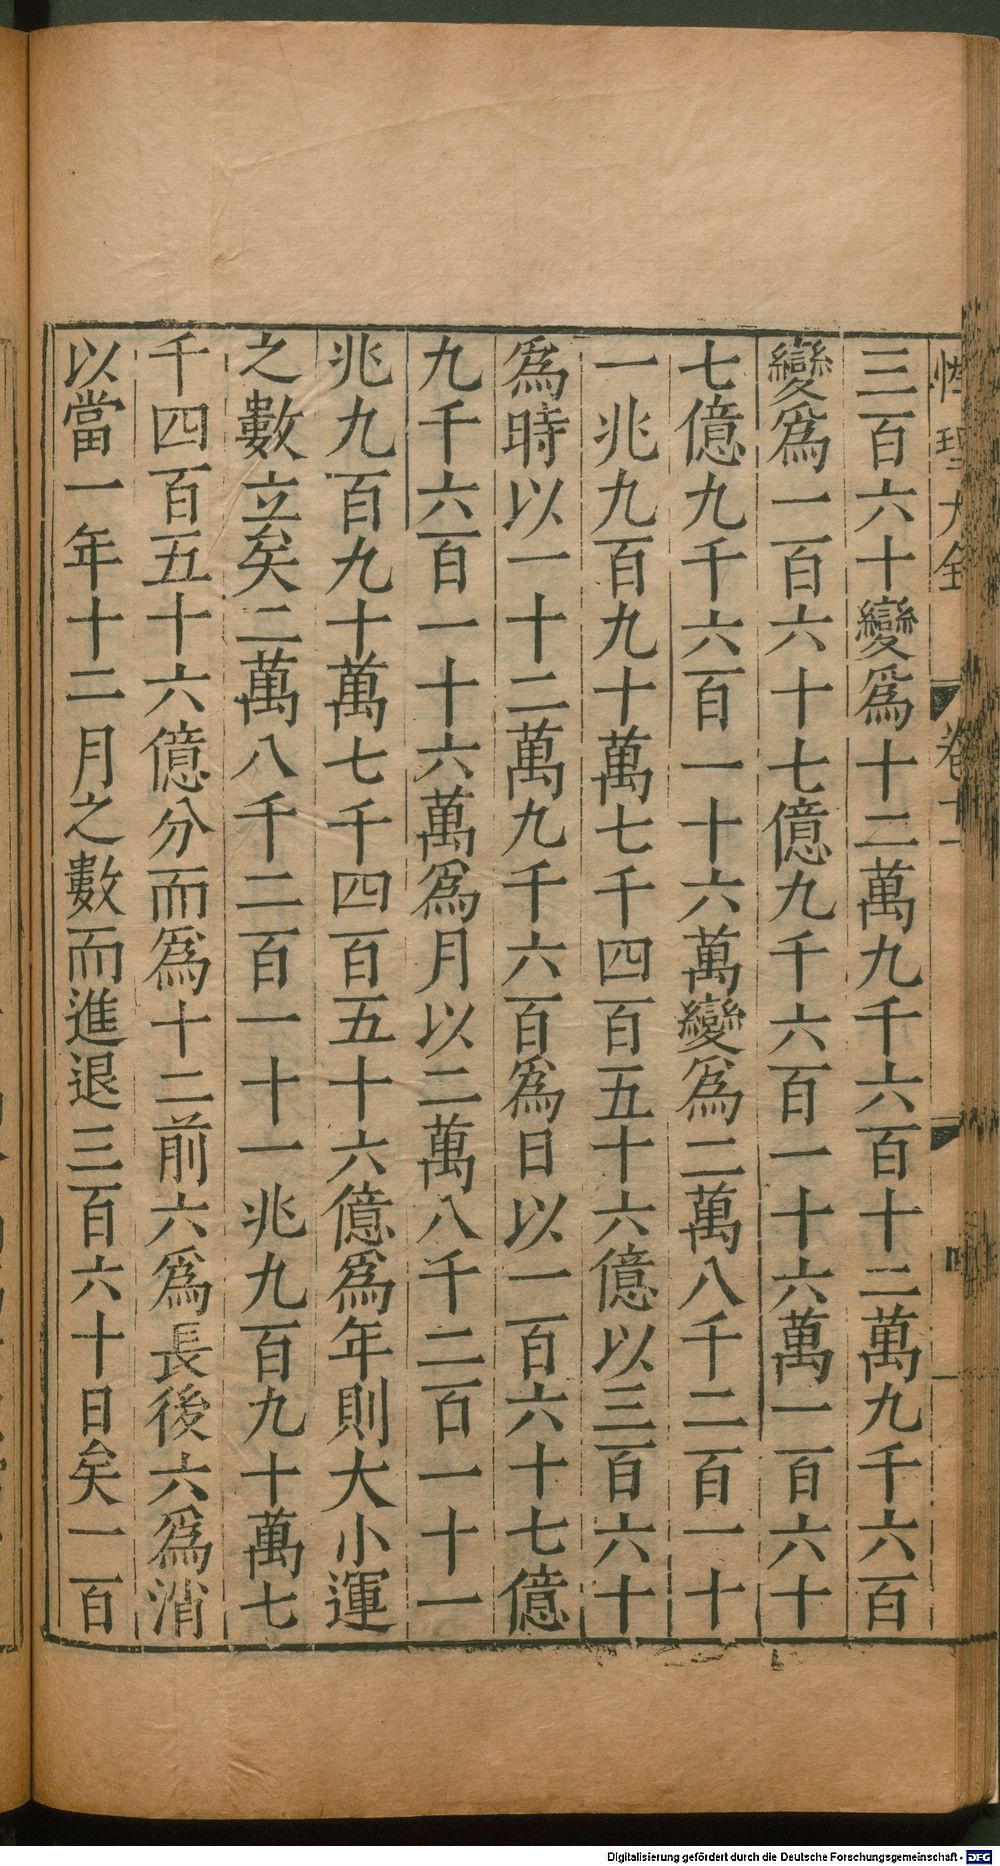 性理大全 卷十一
三百六十變爲十二萬九千六百十二萬九千六百
變爲一百六十七億九千六百一十六萬一百六十
七億九千六百一十六萬變爲二萬八千二百一十
一兆九百九十萬七千四百五十六億以三百六十
爲時以一十二萬九千六百爲日以一百六十七億
九千六百一十六萬爲月以二萬八千二百一十一
兆九百九十萬七千四百五十六億爲年則大小運
之數立矣二萬八千二百一十一兆九百九十萬七
千四百五十六億分而爲十二前六爲長後六爲消
以當一年十二月之數而進退三百六十日矣一百
Digitalisierung gefördert durch die Deutsche Forschungsgemeinschaft - DFG